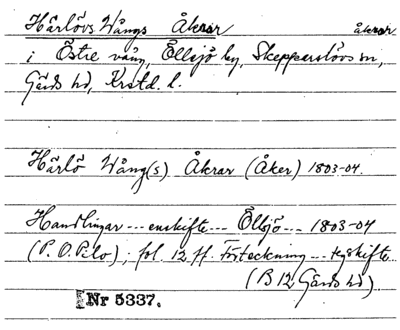 Härlövs Wångs Åkrar åkrar
i Östre vång, Ellsjö by, Skepparslövs sn,
Gärds hd, Krstd. l.
Härlö Wång(s) Åkrar (Åker) 1803-04.
Handlingar --- enskifte --- Ellsjö --- 1803-04
(P. O. Pilo); fol. 12 ff. Förteckning --- egskifte
(B 12 Gärds hd)
Nr 5337.